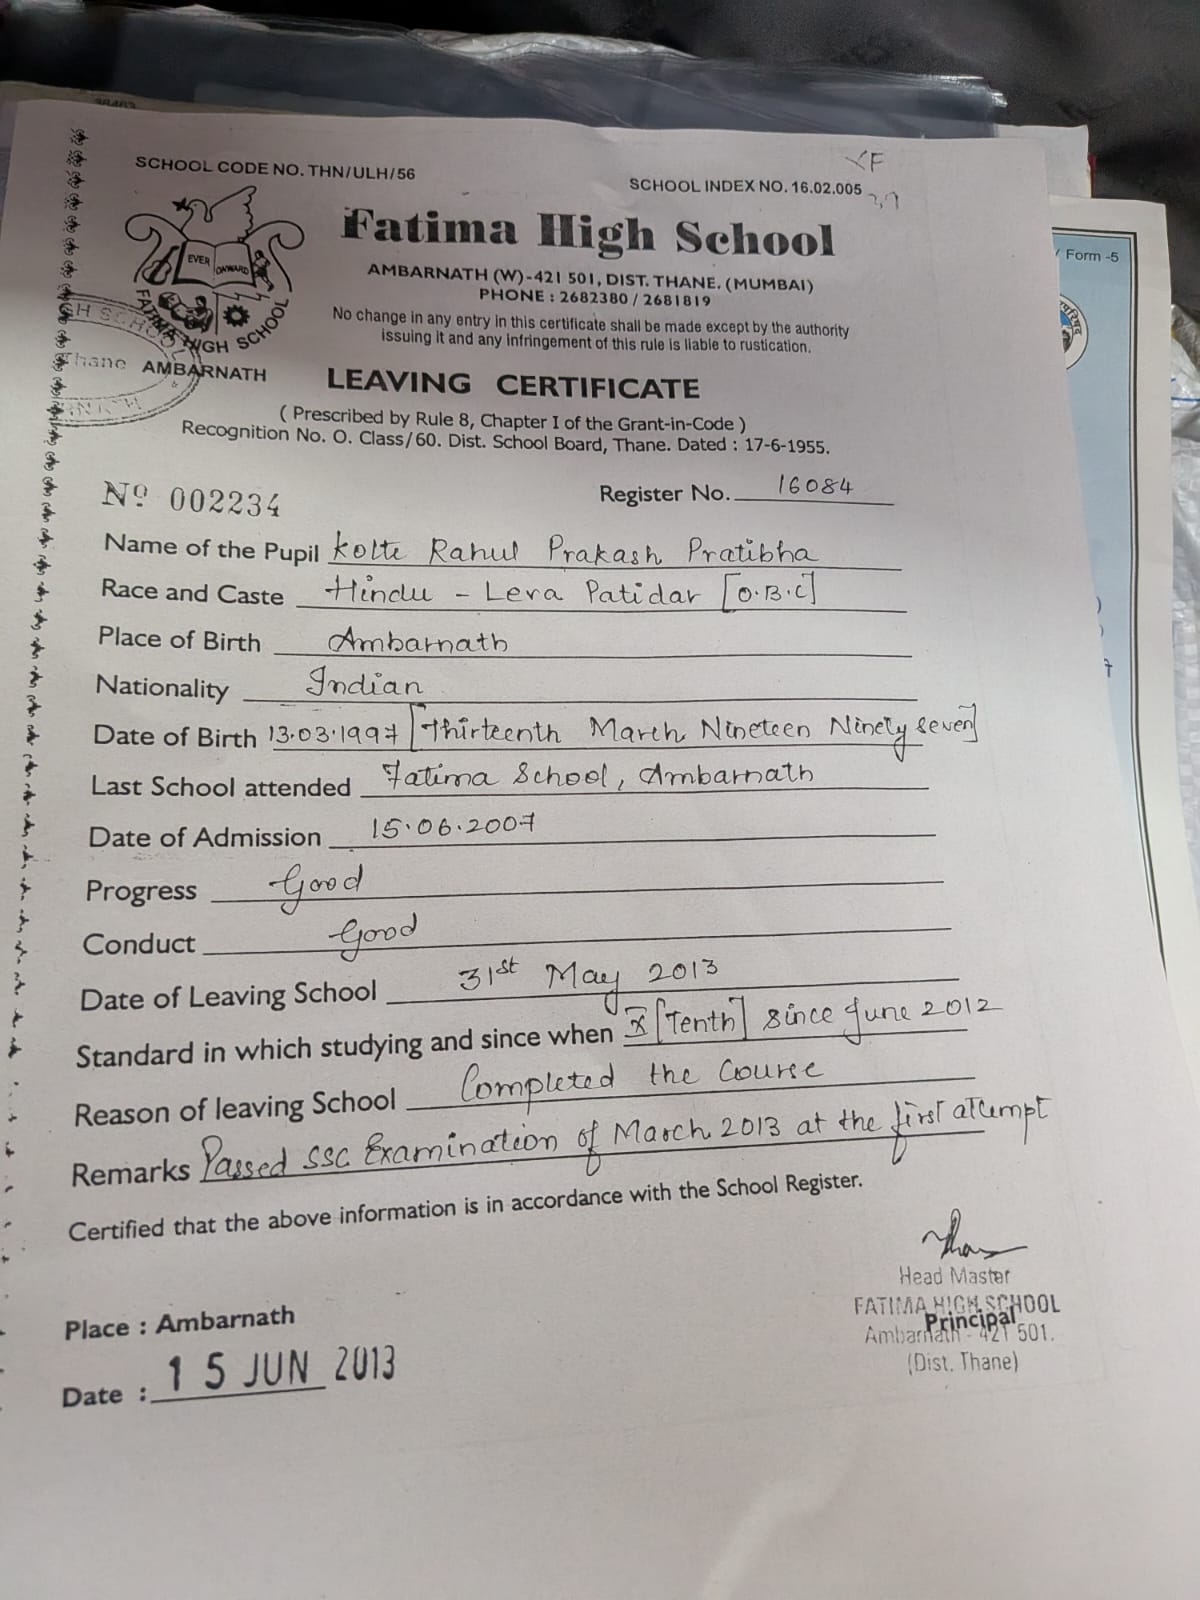 38463
XF
SCHOOL CODE NO. THN/ULH/56
SCHOOL INDEX NO. 16.02.005
Fatima High School
EVER ONWARD
FATIMA HIGH SCHOOL
AMBARNATH
AMBARNATH (W)-421 501, DIST. THANE. (MUMBAI)
PHONE : 2682380 / 2681819
No change in any entry in this certificate shall be made except by the authority
issuing it and any infringement of this rule is liable to rustication.
GH SCHOOL
Thane
LEAVING CERTIFICATE
( Prescribed by Rule 8, Chapter I of the Grant-in-Code )
Recognition No. O. Class/60. Dist. School Board, Thane. Dated : 17-6-1955.
Nº 002234
Register No. 16084
Name of the Pupil Kolte Rahul Prakash Pratibha
Race and Caste Hindu - Leva Patidar [O.B.C]
Place of Birth Ambarnath
Nationality Indian
Date of Birth 13.03.1997 [Thirteenth March Nineteen Ninety seven]
Last School attended Fatima School, Ambarnath
Date of Admission 15.06.2007
Progress Good
Conduct Good
Date of Leaving School 31st May 2013
Standard in which studying and since when X [Tenth] since June 2012
Reason of leaving School Completed the Course
Remarks Passed SSC Examination of March 2013 at the first attempt
Certified that the above information is in accordance with the School Register.
Head Master
FATIMA HIGH SCHOOL
Principal
Ambarnath - 421 501.
(Dist. Thane)
Place : Ambarnath
Date : 15 JUN 2013
/ Form -5